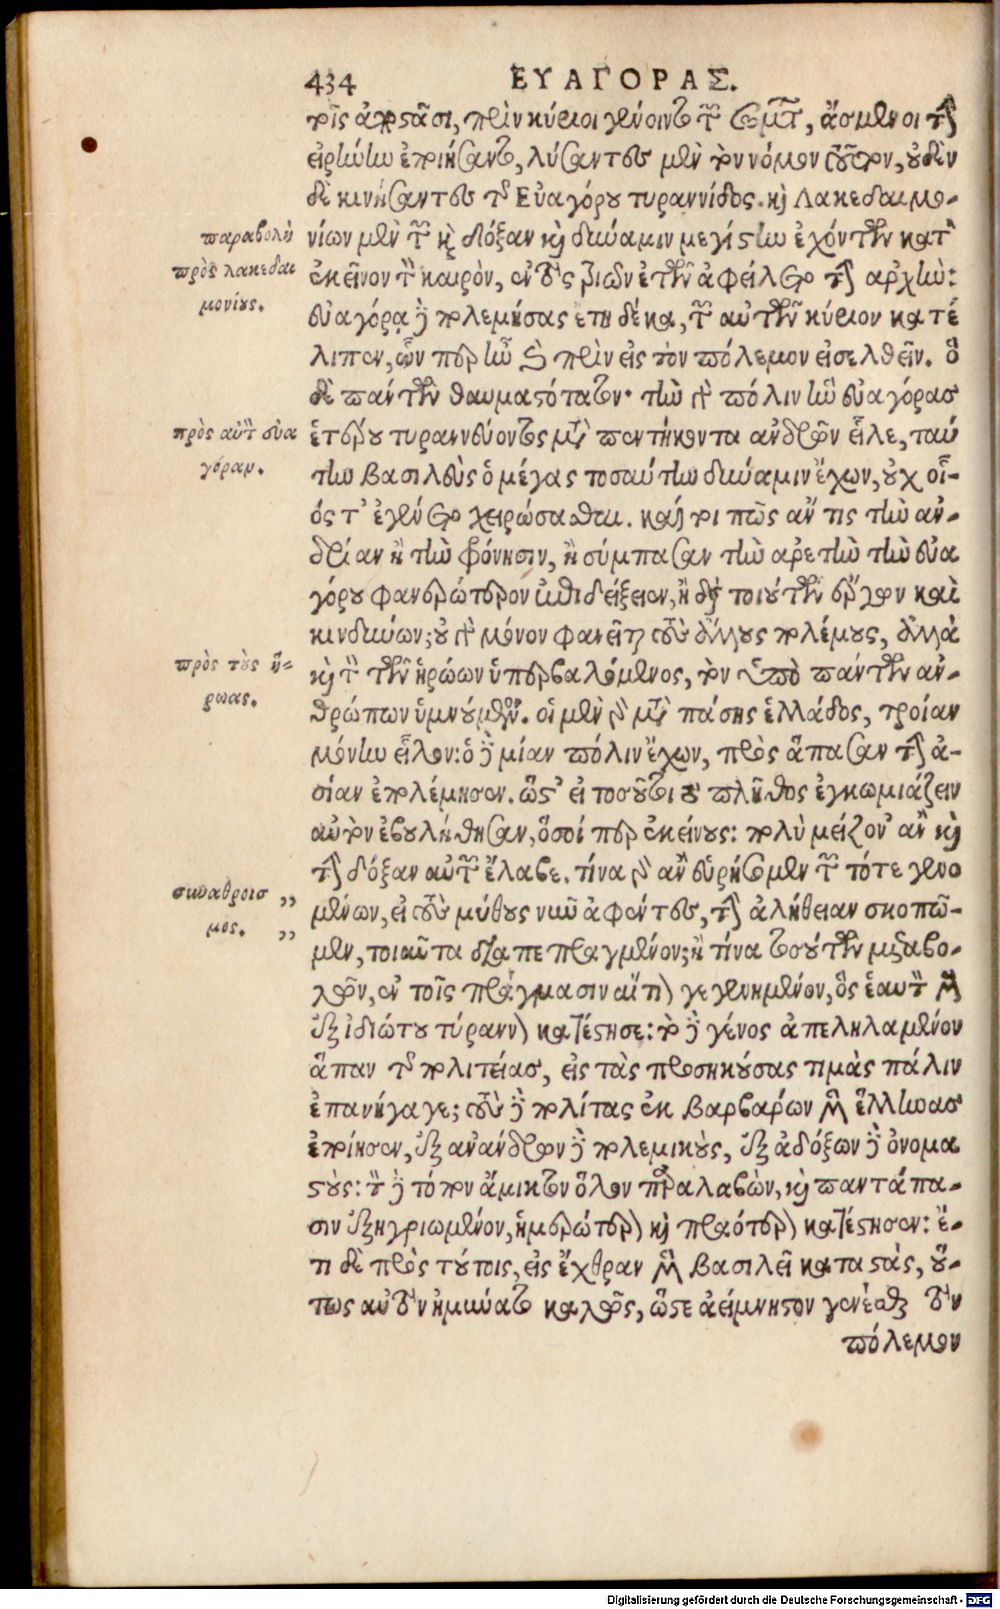 434 ΕΥΑΓΟΡΑΣ.
τοῖς ἀποστᾶσι, πρὶν κύριοι γενέσθαι τῶν σωμάτων, ἄσμενοι τὴν
εἰρήνην ἐποιήσαντο, λύσαντες μὲν τὸν νόμον τοῦτον, οὐδὲν
δὲ κινήσαντες τῆς Εὐαγόρου τυραννίδος. καὶ Λακεδαιμο-
παραβολὴ
νίων μὲν τῶν καὶ δόξαν καὶ δύναμιν μεγίστην ἐχόντων κατ'
πρὸς λακεδαι
ἐκεῖνον τὸν καιρὸν, ἐντὸς τριῶν ἐτῶν ἀφείλετο τὴν ἀρχὴν:
μονίους.
εὐαγόρᾳ δὲ πολεμήσας ἔτη δέκα, τῶν αὐτῶν κύριον κατέ
λιπεν, ὧν περ ἦν καὶ πρὶν εἰς τὸν πόλεμον εἰσελθεῖν. ὃ
δὲ πάντων θαυμαστότατον· τὴν γὰρ πόλιν ἣν εὐαγόρας
πρὸς αὐτὸν εὐα
ἑτέρου τυραννεύοντος μετὰ πεντήκοντα ἀνδρῶν εἷλε, ταύ
γόραν.
την βασιλεὺς ὁ μέγας τοσαύτην δύναμιν ἔχων, οὐχ οἷ-
ός τ' ἐγένετο χειρώσασθαι. καίτοι πῶς ἄν τις τὴν ἀν-
δρίαν ἢ τὴν φρόνησιν, ἢ σύμπασαν τὴν ἀρετὴν τὴν εὐα
γόρου φανερώτερον ἐπιδείξειεν, ἢ διὰ τοιούτων ἔργων καὶ
κινδύνων; οὐ γὰρ μόνον φανεῖται τοὺς ἄλλους πολέμους, ἀλλὰ
πρὸς τοὺς ἥ-
καὶ τὸν τῶν ἡρώων ὑπερβαλόμενος, τὸν ὑπὸ πάντων ἀν-
ρωας.
θρώπων ὑμνούμενον. οἱ μὲν γὰρ μετὰ πάσης ἑλλάδος, τροίαν
μόνην εἷλον: ὁ δὲ μίαν πόλιν ἔχων, πρὸς ἅπασαν τὴν ἀ-
σίαν ἐπολέμησεν. ὥστ' εἰ τοσοῦτοι τὸ πλῆθος ἐγκωμιάζειν
αὐτὸν ἐβουλήθησαν, ὅσοι περ ἐκείνους: πολὺ μείζον' ἂν καὶ
τὴν δόξαν αὐτῶν ἔλαβε. τίνα γὰρ ἂν εὑρήσομεν τῶν τότε γενο
συναθροισ ,,
μένων, εἰ τοὺς μύθους νῦν ἀφέντες, τὴν ἀλήθειαν σκοπῶ-
μος. ,,
μεν, τοιαῦτα διαπεπραγμένον; ἢ τίνα τοσούτων μεταβο-
λῶν, ἐν τοῖς πράγμασιν αἴτιον γεγενημένον, ὃς ἑαυτὸν μὲν
ἐξ ἰδιώτου τύραννον κατέστησε: τὸ δὲ γένος ἀπεληλαμένον
ἅπαν τῆς πολιτείας, εἰς τὰς προσηκούσας τιμὰς πάλιν
ἐπανήγαγε; τοὺς δὲ πολίτας ἐκ βαρβάρων μὲν ἕλληνας
ἐποίησεν, ἐξ ἀνάνδρων δὲ πολεμικοὺς, ἐξ ἀδόξων δὲ ὀνομα
στούς: τὸν δὲ τόπον ἄμικτον ὅλον παραλαβὼν, καὶ παντάπα-
σιν ἐξηγριωμένον, ἡμερώτερον καὶ πραότερον κατέστησεν: ἔ-
τι δὲ πρὸς τούτοις, εἰς ἔχθραν μὲν βασιλεῖ καταστὰς, οὕ-
τως αὐτὸν ἠμύνατο καλῶς, ὥστε ἀείμνηστον γενέσθαι τὸν
πόλεμον
Digitalisierung gefördert durch die Deutsche Forschungsgemeinschaft - DFG